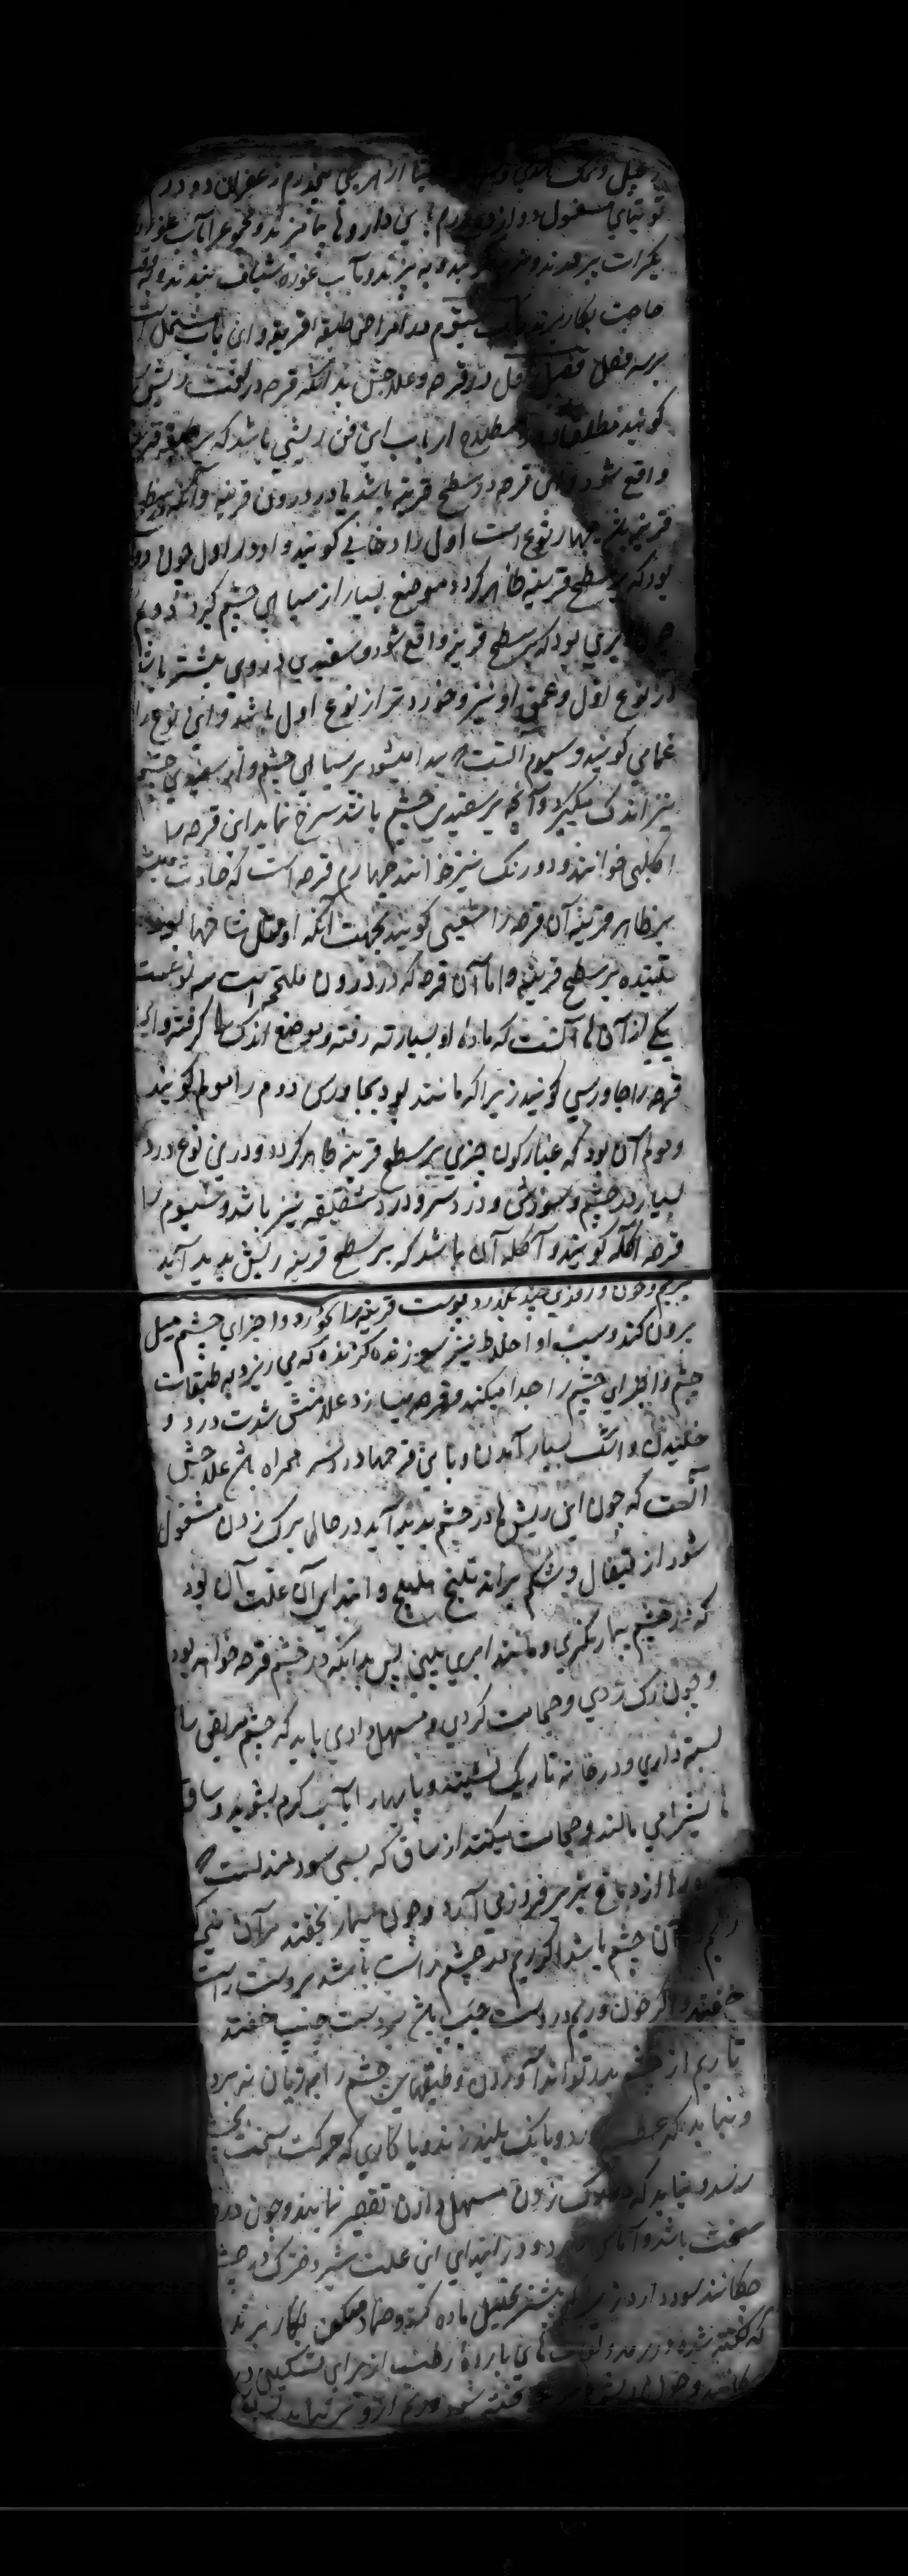 زنجبیل و نمک هندی از هر یکی پنجدرم زعفران دو درم
توتیای مغسول دوازده درم این داروها را نرم کنند و مجموع را بآب غوره
بکرات پرورند و به پزند و بآب غوره شیاف بندند و بوقت
حاجت بکار برند باب در امراض طبقه قرنیه و این باب مشتمل است
بر سه فصل فصل اول در قرحه و علاجش بدانکه قرحه در لغت ریش را
کویند مطلقا و در مصطلح ارباب این فن ریشی باشد که بر طبقه قرنیه
واقع شود و این قرحه در سطح قرنیه باشد یا در درون قرنیه و آنکه بر سطح
قرنیه بود چهار نوع است اول را دخانی کویند و او در اول چون دود
بود که بر سطح قرنیه ظاهر کردد و موضع بسیار از سیاهی چشم کیرد دویم
چون ابری بود که بر سطح قرنیه واقع شود و سفیدی او بیشتر باشد
از نوع اول و عمق او نیز و خوردتر از نوع اول باشد و این نوع را
غمامی کویند و سیوم آنست که پیدا میشود بر سیاهی چشم و از سفیدی چشم
نیز اندک میکیرد و آنچه بر سفیدی چشم باشد سرخ نماید این قرحه را
اکلیلی خوانند و دو رنک نیز خوانند چهارم قرحه است که حادث میشود
بر ظاهر قرنیه آن قرحه را شعبی کویند بجهت آنکه او مثل شاخها بود
تنیده بر سطح قرنیه و اما آن قرحه که در درون ملتحمه است سه نوعست
یکی از آن ها آنست که ماده او بسیار ته رفته و موضع اندک را کرفته و این
قرحه را جاورسی کویند زیرا که مانند بود بجاورس دوم را موم کویند
و موم آن بود که غبارکون چیزی بر سطح قرنیه ظاهر کردد و درین نوع درد
بسیار در چشم و سوزش و درد سر و درد شقیقه نیز باشد و سیوم را
قرحه آکله کویند و آکله آن باشد که بر سطح قرنیه ریش پدید آید
بریم و چون روزی چند بکذرد پوست قرنیه را بخورد و اجزای چشم میل
برون کند و سبب او اخلاط تیز سوزنده کزنده که می ریزد به طبقات
چشم و اجزای چشم را جدا میکند و قرحه میسازد علامتش شدت درد و
خلیدن و اشک بسیار آمدن و با این قرحها درد سر همراه باشد علاجش
آنست که چون این ریش ها در چشم پدید آید در حال برک زدن مشغول
شود از قیفال و شکم براند بتلخ هلیله و ابتدای آن علت آن بود
که در چشم بیمار نکری و مانند ابری بینی پس بدانکه در چشم قرحه خواهد بود
و چون رک زدی و حجامت کردی و مسهل دادی باید که چشم مریض را
بسته داری و در خانه تاریک نشیند و پایها را بآب کرم بشوید و ساق
ها نیز امی مالند و حجامت میکنند از ساق که بسی سودمند است
از دماغ بزیر فرو می آرد و چون بیمار بخفتد بر آن نیم
آن چشم باشد اکر ریم در چشم راست باشد بر دست راست
خفتد و اکر خون و ریم در دست چپ باشد بر دست چپ خفتد
تا ریم از چشم بدر تواند آوردن و طبقهای چشم را به زیان نبرد
و نباید که عطسه آورد و بانک بلند زند و یا کاری که حرکت سخت بچشم
رسد و نباید که در رک زدن و مسهل دادن تقصیر نمایند و چون درد
سخت باشد و آماس دارد و در ابتدای این علت شیر دخترک در چشم
چکانند سود دارد زیرا که شیر تحلیل ماده کند و ضماد بکار برند
که کفته شد